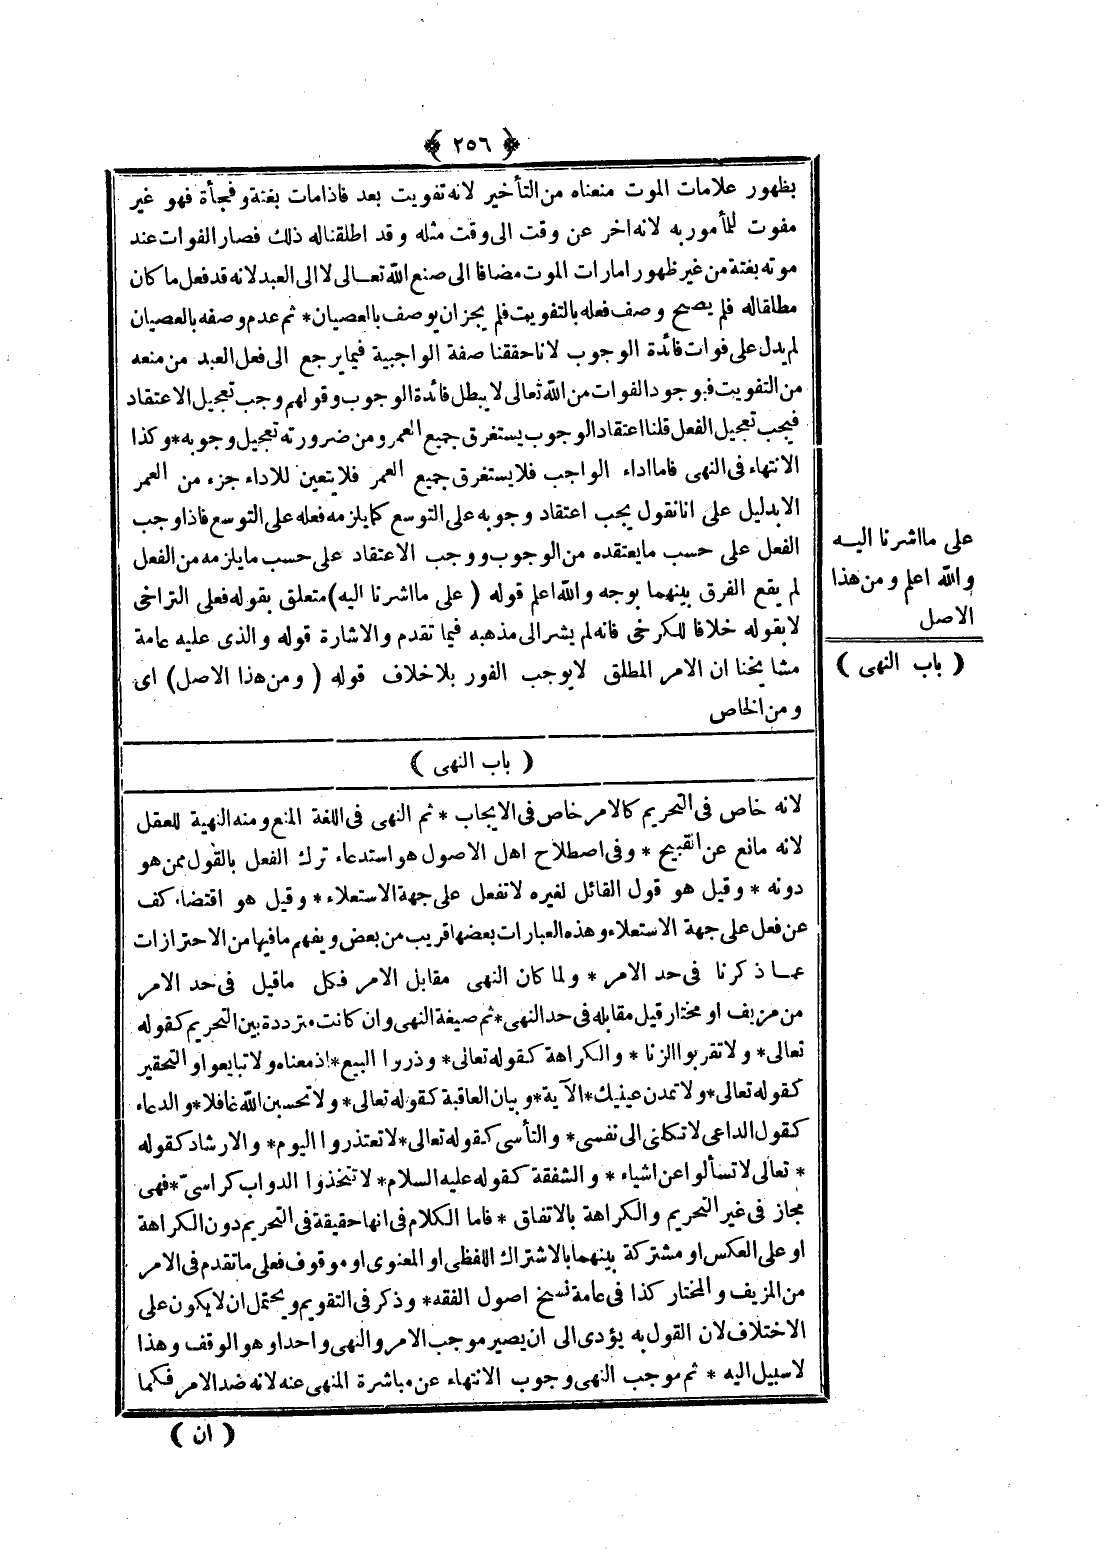 ﴿ ٢٥٦ ﴾
بظهور علامات الموت منعناه من التأخير لانه تفويت بعد فاذامات بغتة وفجأة فهو غير
مفوت للمأموربه لانه اخر عن وقت الى وقت مثله وقد اطلقناله ذلك فصار الفوات عند
موته بغتة من غير ظهور امارات الموت مضافا الى صنع الله تعالى لا الى العبد لانه قد فعل ما كان
مطلقاله فلم يصح وصف فعله بالتفويت فلم يجزان يوصف بالعصيان * ثم عدم وصفه بالعصيان
لم يدل على فوات فائدة الوجوب لانا حققنا صفة الواجبية فيما يرجع الى فعل العبد من منعه
من التفويت فبوجود الفوات من الله تعالى لا يبطل فائدة الوجوب وقولهم وجب تعجيل الاعتقاد
فيجب تعجيل الفعل قلنا اعتقاد الوجوب يستغرق جميع العمر ومن ضرورته تعجيل وجوبه * وكذا
الانتهاء فى النهى فاما اداء الواجب فلا يستغرق جميع العمر فلا يتعين للاداء جزء من العمر
الابدليل على انا نقول يجب اعتقاد وجوبه على التوسع كما يلزمه فعله على التوسع فاذا وجب
الفعل على حسب ما يعتقده من الوجوب ووجب الاعتقاد على حسب ما يلزمه من الفعل
لم يقع الفرق بينهما بوجه والله اعلم قوله ( على ما اشرنا اليه ) متعلق بقوله فعلى التراخى
لا بقوله خلافا للكرخى فانه لم يشر الى مذهبه فيما تقدم والاشارة قوله والذى عليه عامة
مشايخنا ان الامر المطلق لايوجب الفور بلاخلاف قوله ( ومن هذا الاصل ) اى
ومن الخاص
على ما اشرنا اليه
والله اعلم ومن هذا
الاصل
( باب النهى )
( باب النهى )
لانه خاص فى التحريم كالامر خاص فى الايجاب * ثم النهى فى اللغة المنع ومنه النهية للعقل
لانه مانع عن القبيح * وفى اصطلاح اهل الاصول هو استدعاء ترك الفعل بالقول ممن هو
دونه * وقيل هو قول القائل لغيره لا تفعل على جهة الاستعلاء * وقيل هو اقتضاء كف
عن فعل على جهة الاستعلاء وهذه العبارات بعضها قريب من بعض ويفهم ما فيها من الاحترازات
عما ذكرنا فى حد الامر * ولما كان النهى مقابل الامر فكل ماقيل فى حد الامر
من مزيف او مختار قيل مقابله فى حد النهى * ثم صيغة النهى وان كانت مترددة بين التحريم كقوله
تعالى * ولا تقربوا الزنا * والكراهة كقوله تعالى * وذروا البيع * اذ معناه ولا تبايعوا والتحقير
كقوله تعالى * ولا تمدن عينيك * الآية * وبيان العاقبة كقوله تعالى * ولا تحسبن الله غافلا * والدعاء
كقول الداعى لا تكلنى الى نفسى * والتأسى كقوله تعالى * لا تعتذروا اليوم * والارشاد كقوله
* تعالى لا تسألوا عن اشياء * والشفقة كقوله عليه السلام * لا تتخذوا الدواب كراسىّ * فهى
مجاز فى غير التحريم والكراهة بالاتفاق * فاما الكلام فى انها حقيقة فى التحريم دون الكراهة
او على العكس او مشتركة بينهما بالاشتراك اللفظى او المعنوى او موقوف فعلى ما تقدم فى الامر
من المزيف والمختار كذا فى عامة نسخ اصول الفقه * وذكر فى التقويم ويحتمل ان لا يكون على
الاختلاف لان القول به يؤدى الى ان يصير موجب الامر والنهى واحدا وهو الوقف وهذا
لا سبيل اليه * ثم موجب النهى وجوب الانتهاء عن مباشرة المنهى عنه لانه ضد الامر فكما
( ان )